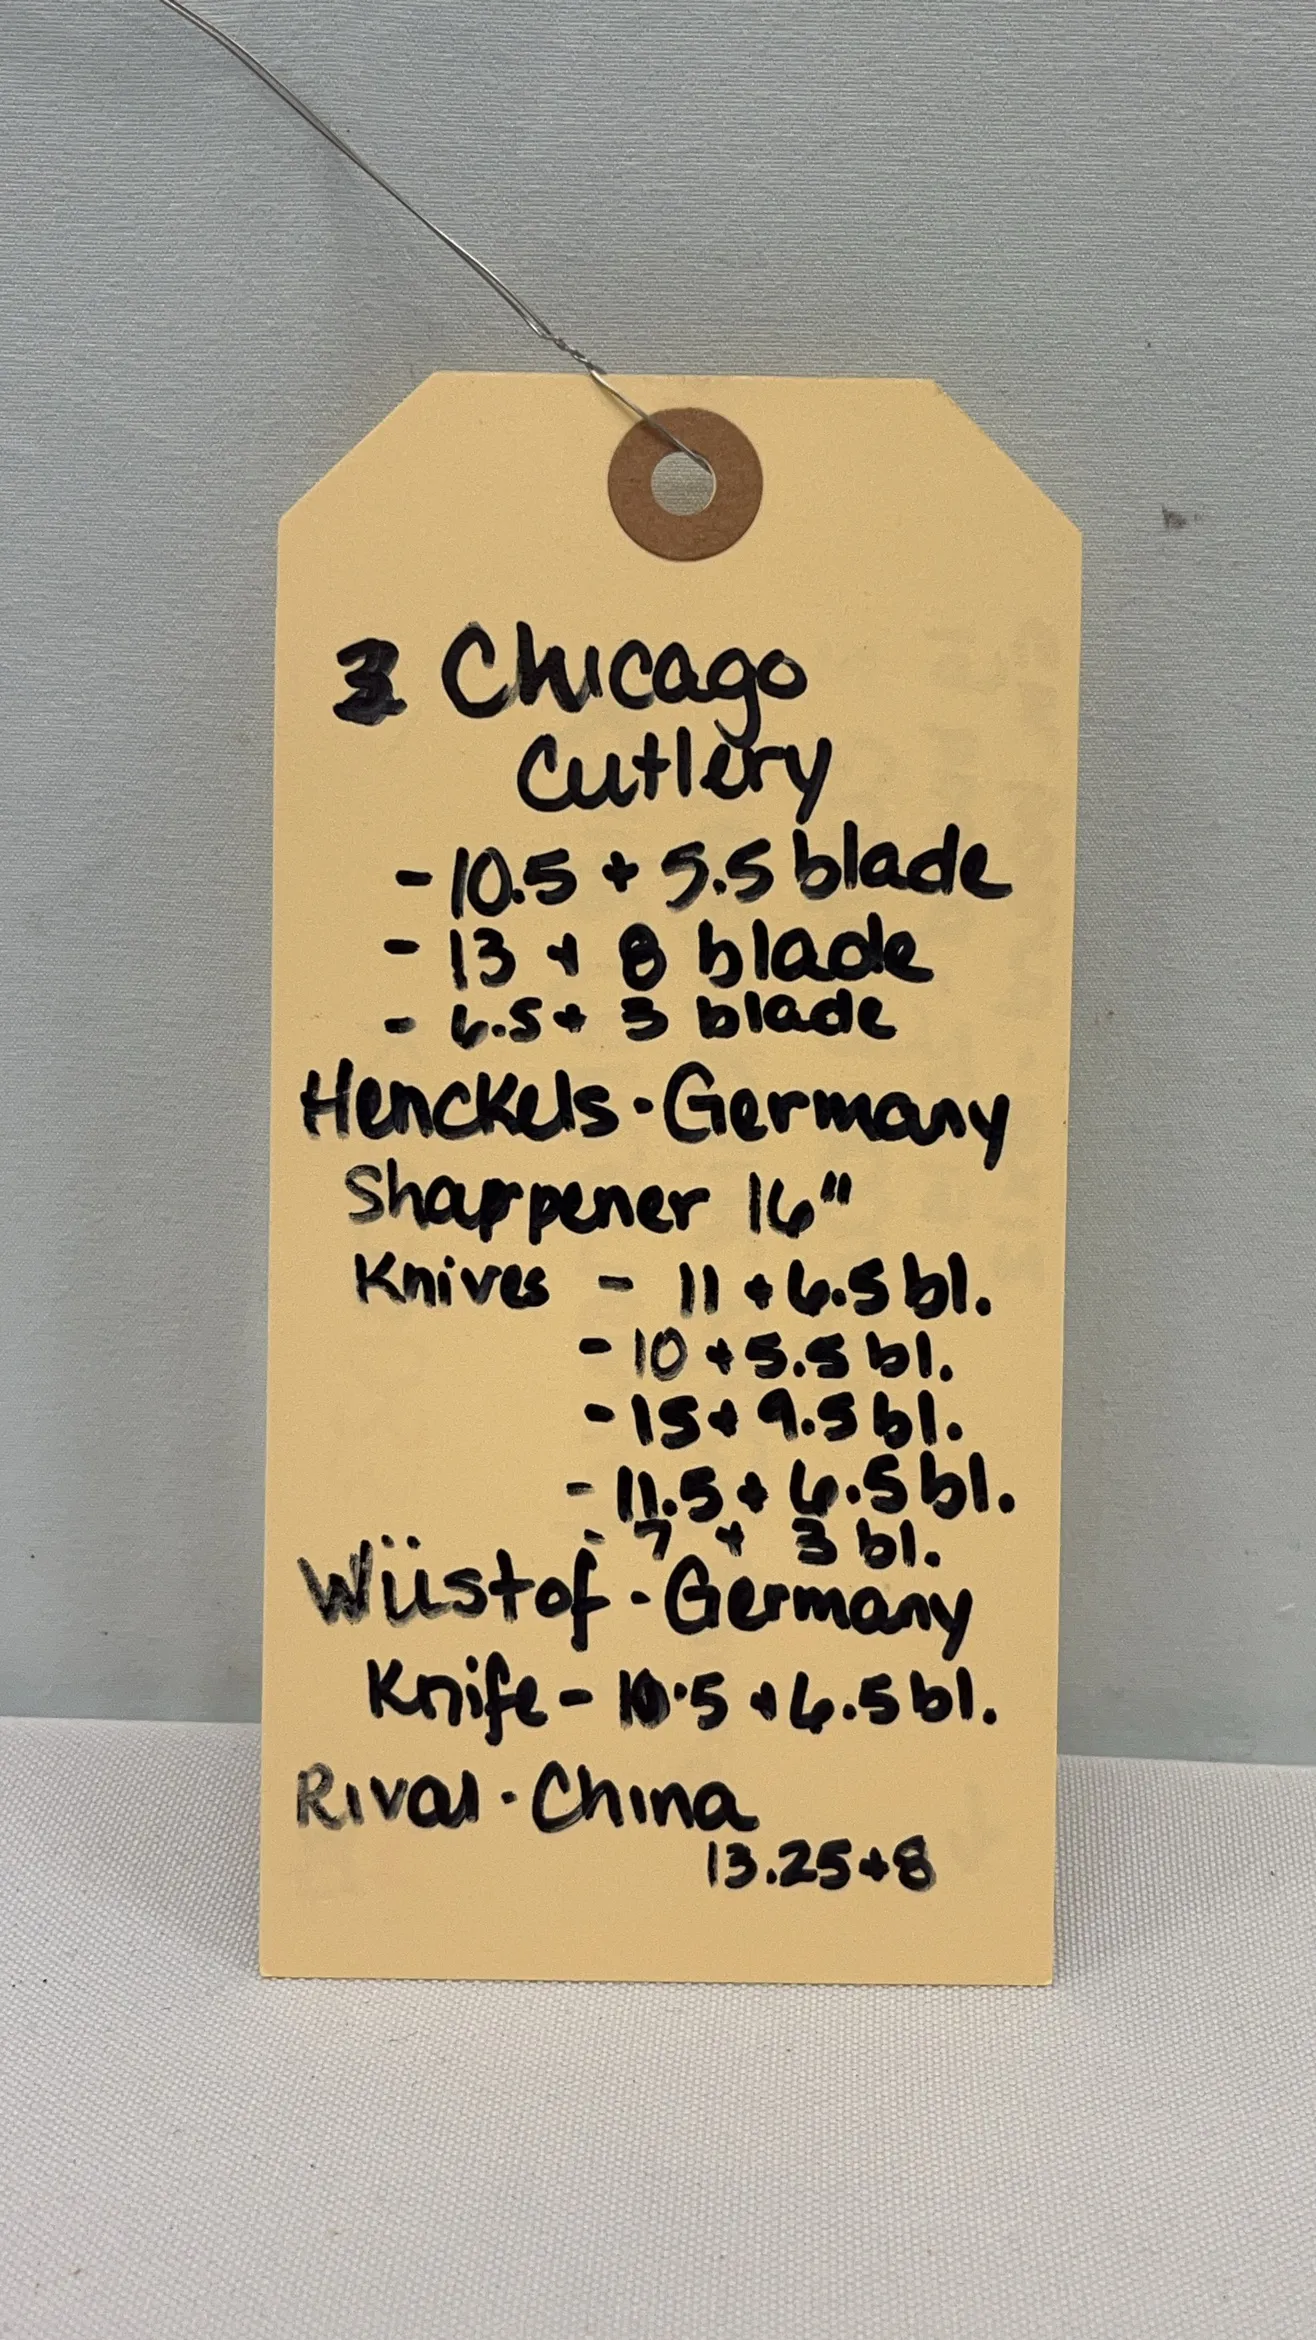 3 Chicago
Cutlery
- 10.5 + 5.5 blade
- 13 + 8 blade
- 6.5 + 3 blade
Henckels · Germany
Sharpener 16"
Knives - 11 + 6.5 bl.
- 10 + 5.5 bl.
- 15 + 9.5 bl.
- 11.5 + 6.5 bl.
- 7 + 3 bl.
Wüstof · Germany
Knife - 10.5 + 6.5 bl.
Rival · China
13.25 + 8